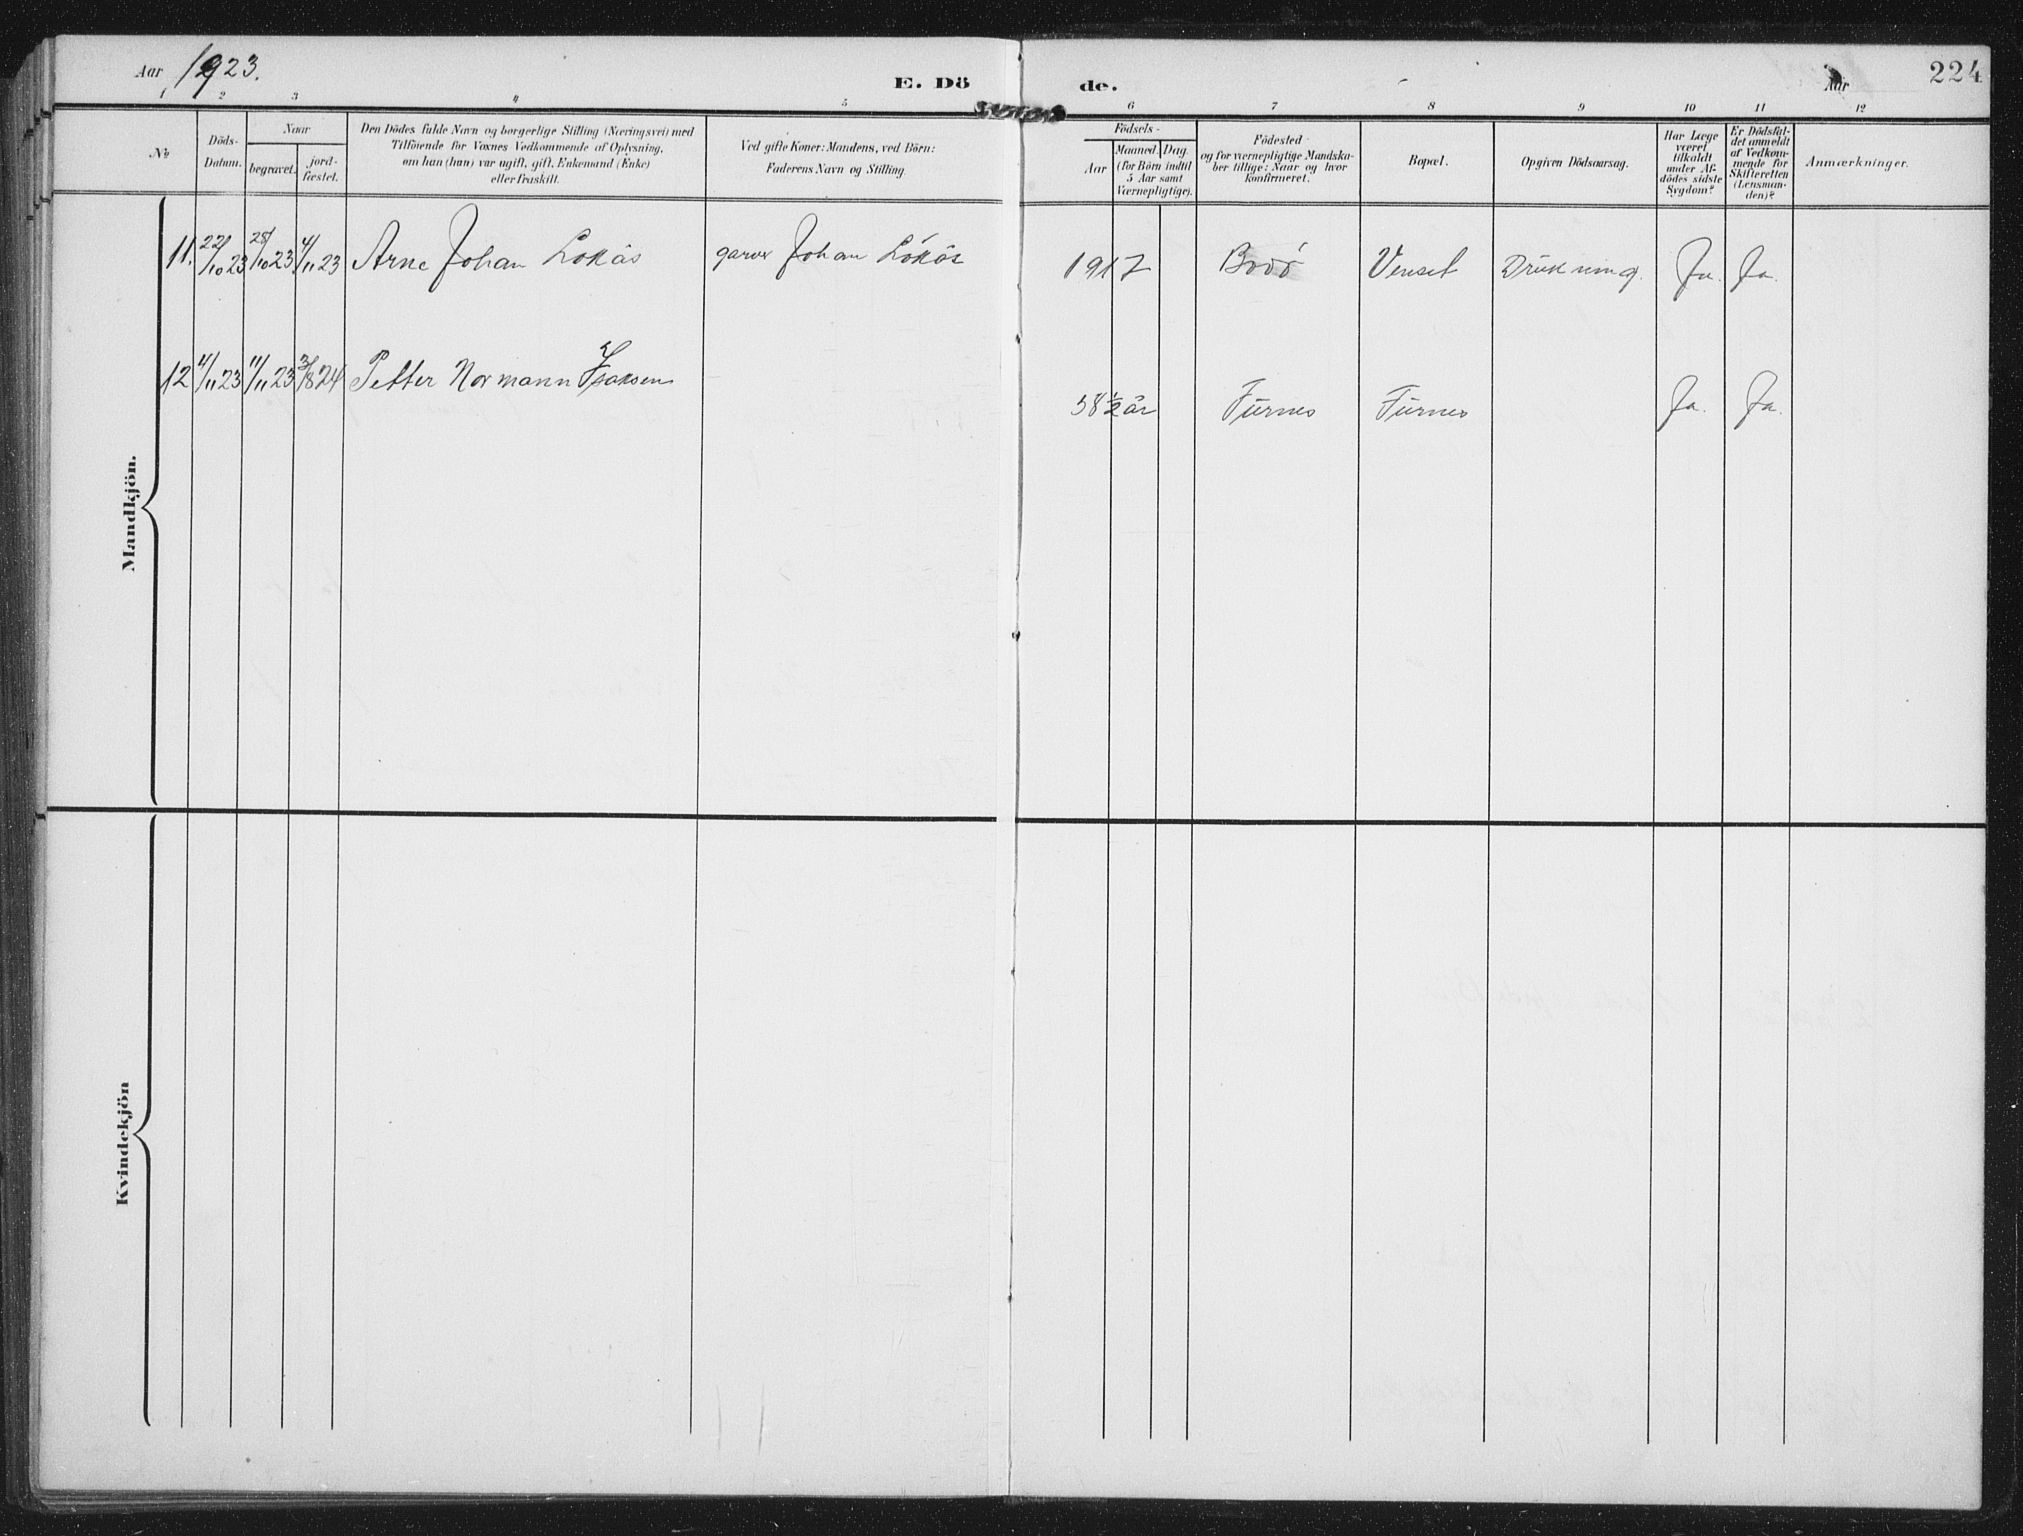 Aar 1923.
E. Dö
de.
Aar
224
1 2 3 4 5 6 7 8 9 10 11 12
No
Döds-
Datum.
Naar
begravet.
jord-
fæstet.
Den Dödes fulde Navn og borgerlige Stilling (Næringsvei) med
Tilförende for Voxnes Vedkommende af Oplysning,
om han (hun) var ugift, gift, Enkemand (Enke)
eller fraskilt.
Ved gifte Koner: Mandens, ved Börn:
Faderens Navn og Stilling.
Födsels-
Aar
Maaned. Dag.
(for Börn indtil
5 Aar samt
Værnepligtige).
Födested
og for værnepligtige Mandska-
ber tillige: Naar og hvor
konfirmeret.
Bopæl.
Opgiven Dödsaarsag.
Har Læge
været
tilkaldt
under Af-
dödes sidste
Sygdom?
Er Dödsfal-
det anmeldt
af Vedkom-
mende for
Skifteretten
(Lensman-
den)?
Anmærkninger.
Mandkjön.
11. 22/10 23 28/10 23 4/11 23 Arne Johan Lökås garver Johan Lökås 1917 Bodö Venset Drukning. Ja. Ja.
12 4/11 23 11/11 23 3/8 24 Petter Normann Isaksen 58 1/2 år Furnes Furnes Ja. Ja.
Kvindekjön